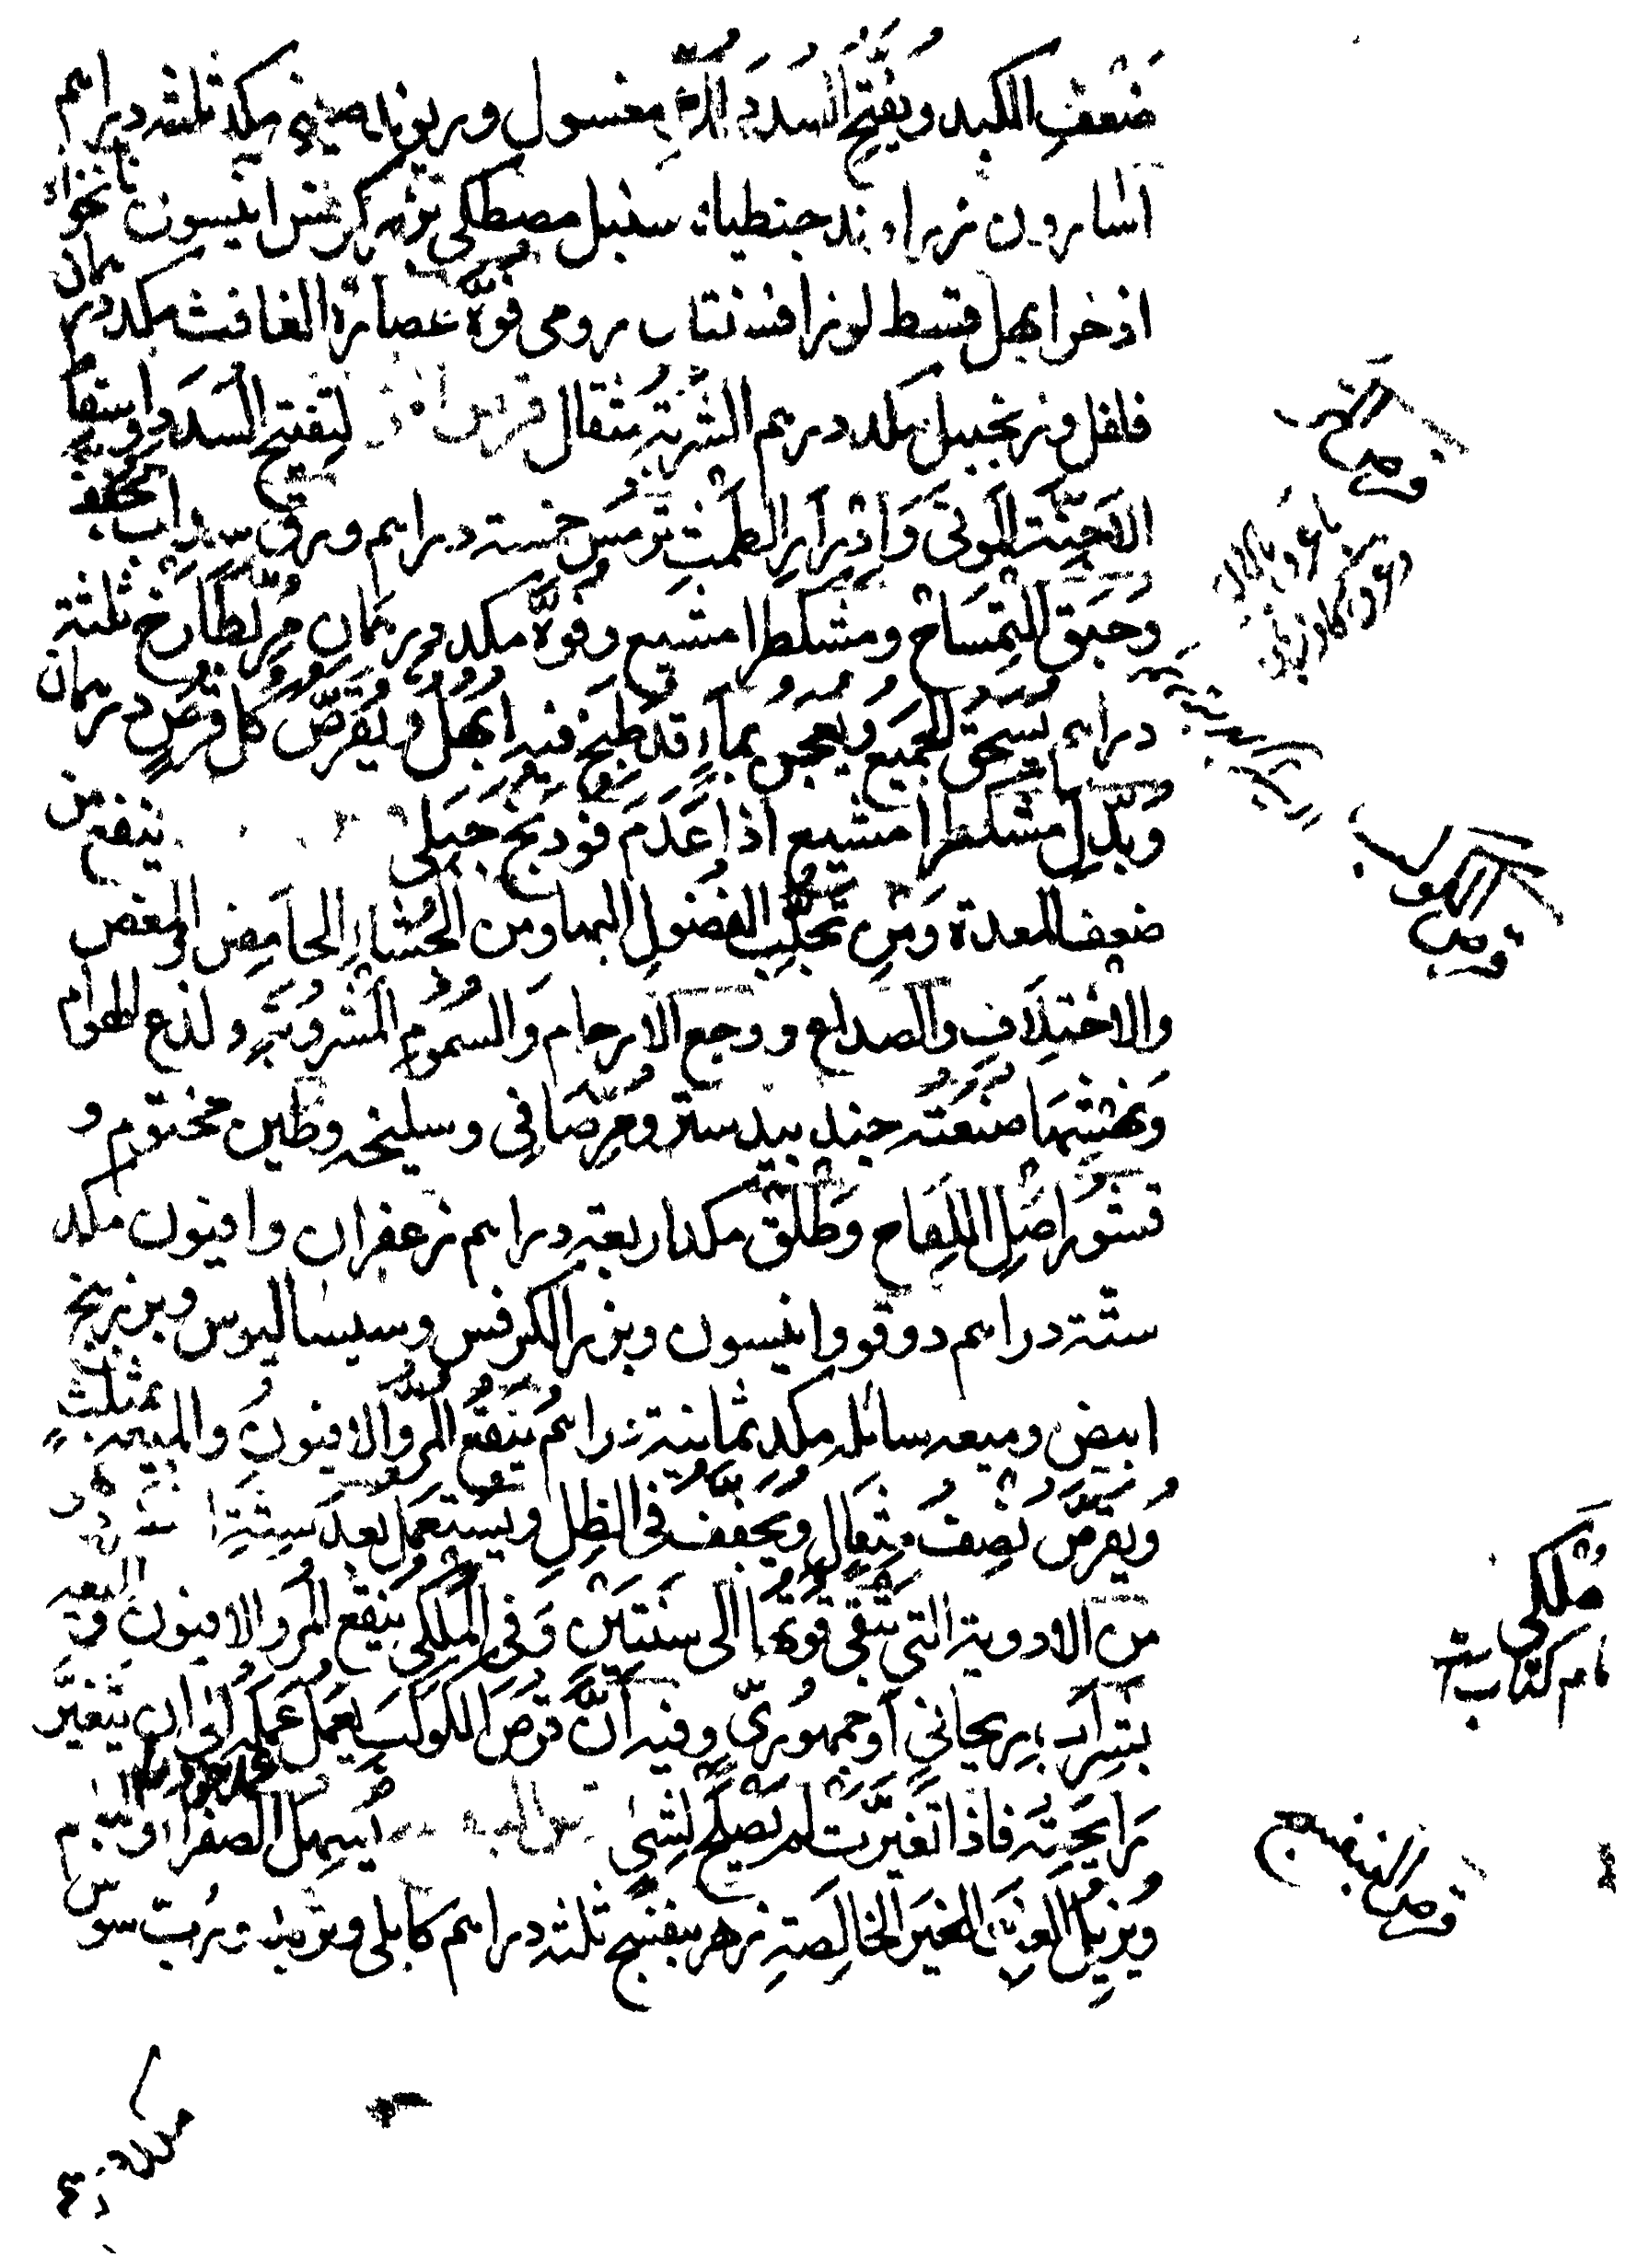 ضَعْفِ الكبد ويُفَتِّحُ السدد لُكّ مغسول وريوند صيني مكد ثلثة دراهم
اسارون زراوند جنطيانا سنبل مصطكى بزر كرفس انيسون نانخواه
اذخر ابهل قسط لوز افسنتين رومى فوّه عصارة الغافث مكد درهمان
فلفل وزنجبيل مكد درهم الشربة مثقال قرص لتفتيح السدد واسقاط
الاجنّة الموتى وَاِدْرَارِ الطمث ترمس خمسة دراهم ورق سداب مجفف
وَحَبَق التِمْسَاح ومشكطرامشيع وفوّه مكد درهمان مُرّ لطّارخ ثلثة
دراهم يُسحق الجميع ويُعجن بمآءٍ قد طُبِخَ فيه ابهل ويُقَرَّصُ كل قُرْصٍ درهمان
وبَدَل مشكطرامشيع اذا عَدَمَ فودنج جَبَلى ينفع من
ضعف المعدة وَمِن تَحَلُّبِ الفضول اليها ومن الجُشاءِ الحامِض والمغص
والاختِلَافِ والصداع ووجع الارحام وَالسُمُومِ المَشْرُوبَةِ ولذع الهوام
وَنهشِهَا صَنْعَتُه جندبيدستر ومُرّ صَافِى وسليخه وطين مختوم و
قشورِ اَصْلِ اللِفَاح وَطَلْق مكد اربعة دراهم زعفران وافيون مكد
ستة دراهم دوقو وانيسون وبزر الكرفس وسيساليوس وبزر بنج
ابيض وميعه سائله مكد ثمانية دراهم يُنْقَعُ المُرُّ والافيونُ والميعه بمثلثٍ
ويُقرّصُ نِصفُ مِثقَالٍ ويُجفف فى الظِلِ ويُستعمَل بعدَ سِتَّةِ اشهر وهو
من الادوية التى تبقى قوتُها الى سنتَيْن وَفى المَلَكى يُنقَع المُر والافيون والميعه
بشرابٍ رِيحانيٍ اَو جمهُورِىّ وفيه اَنَّ قُرصَ الكوكَبِ يَعمَلُ عَمَلَه الى ان يتغيَّر
رَايحَتُه فاذا تغيّرت لم يصلُح لِشَىْ يُسهِلُ الصفراء
ويُزيلُ الغِبَّ الغيرَ الخالِصَةِ زهر بنفسج ثلثه دراهم كابلى وتربد ورُب سوس
قرص الكوكب
مَلَكى
نام كتاب ست
قرص البنفسج